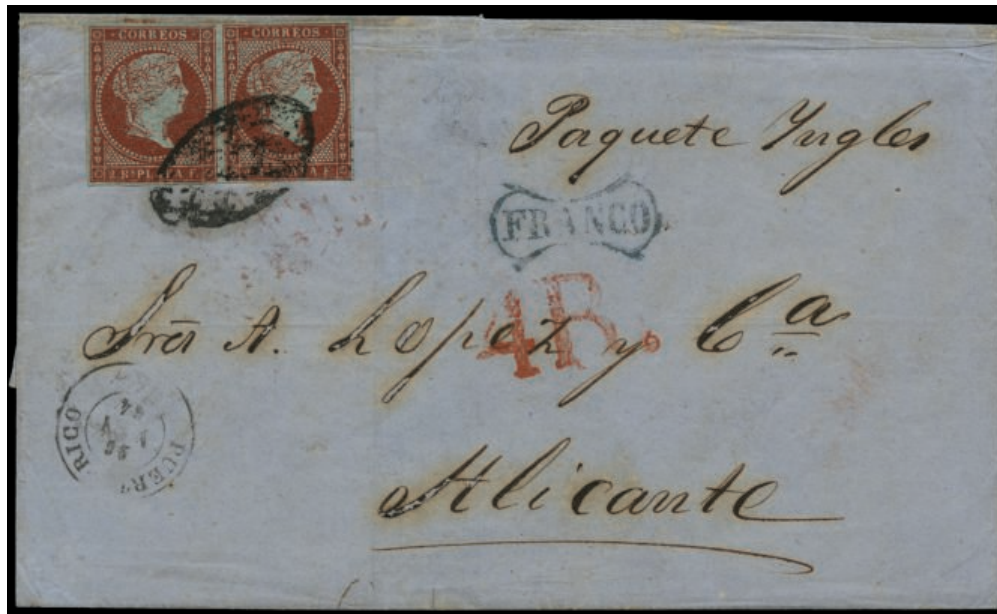 CORREOS CORREOS
1 Rl PLATA F.
A F.
Paquete Yngles
FRANCO
4R.
Sres A. Lopez y Cª
PUERT RICO
Alicante